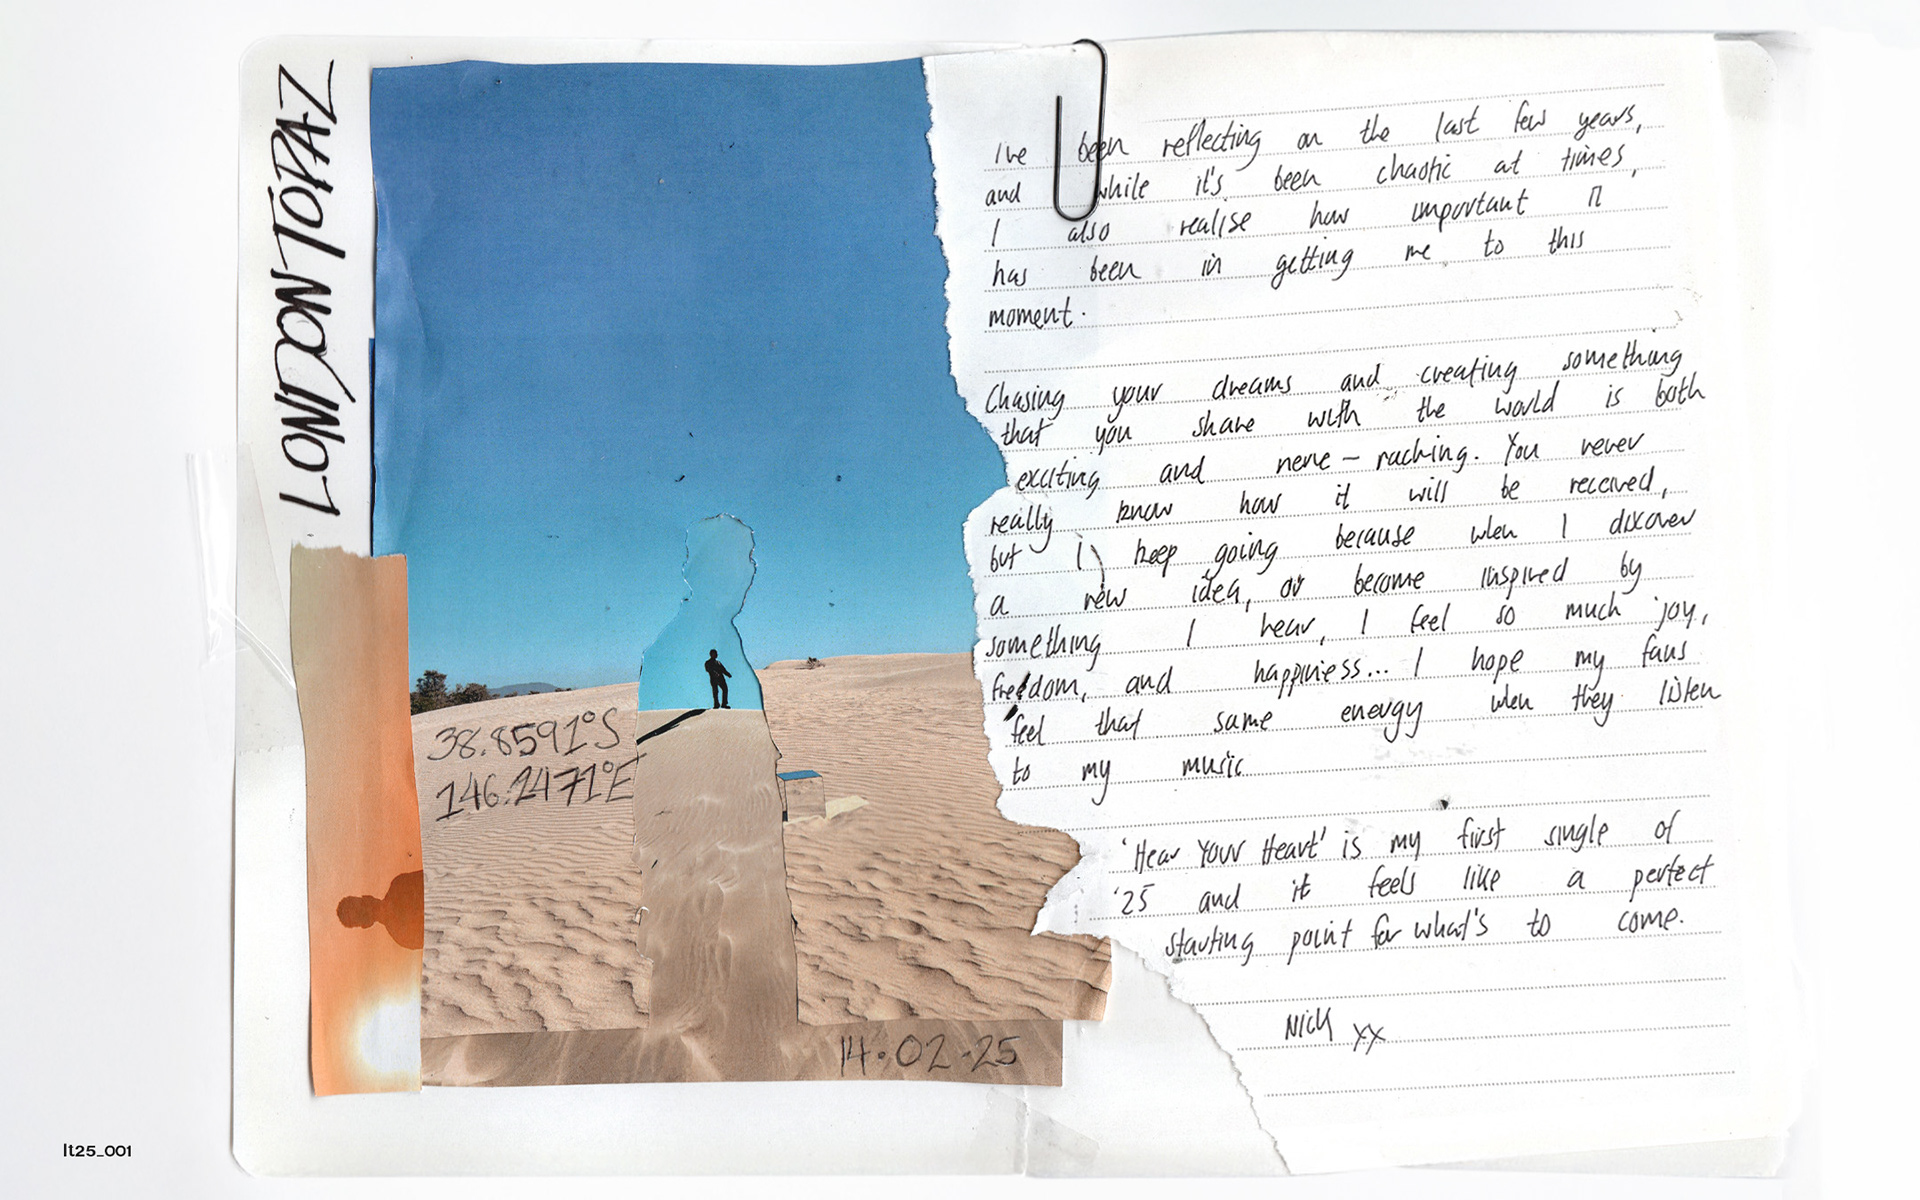 LONDON TOPAZ
38.8591°S
146.2471°E
14.02.25
I've been reflecting on the last few years,
and while it's been chaotic at times,
I also realise how important it
has been in getting me to this
moment.
Chasing your dreams and creating something
that you share with the world is both
exciting and nerve-racking. You never
really know how it will be received,
but I keep going because when I discover
a new idea, or become inspired by
something I hear, I feel so much joy,
freedom, and happiness... I hope my fans
feel that same energy when they listen
to my music
'Hear Your Heart' is my first single of
'25 and it feels like a perfect
starting point for what's to come.
Nick xx
lt25_001